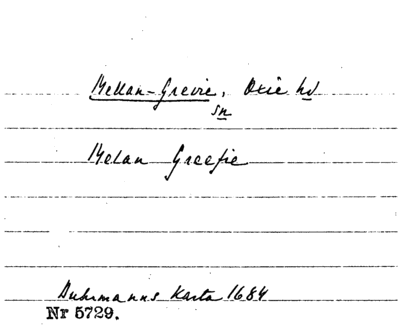 Mellan-Grevie, Oxie hd
sn
Melan Greefie
Buhrmanns Karta 1684
Nr 5729.